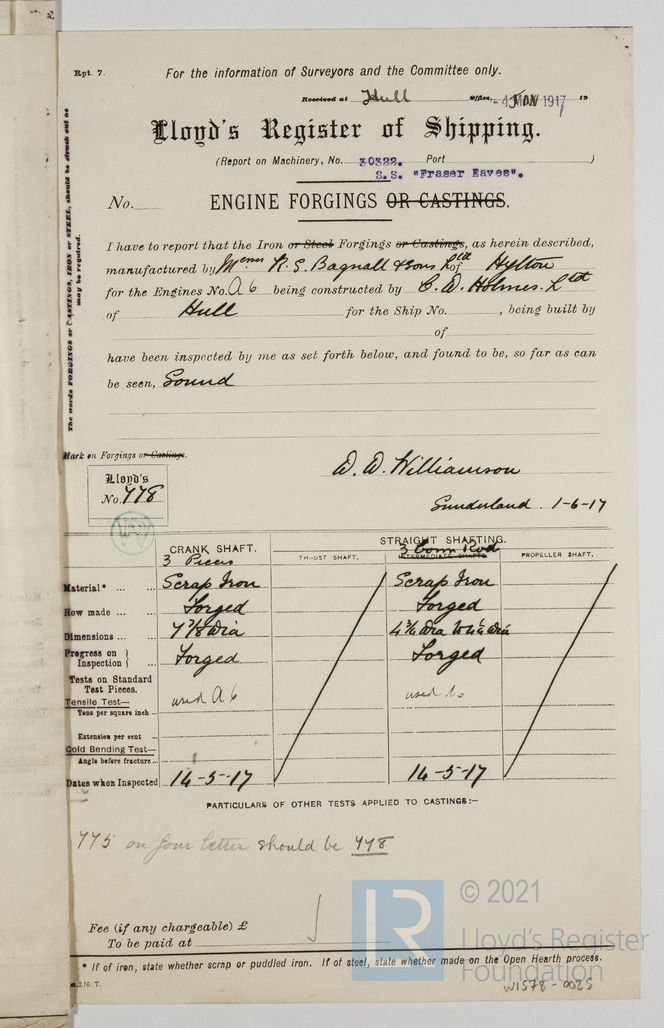 Rpt. 7.
For the information of Surveyors and the Committee only.
Received at Hull Office, 1917 19
Lloyd's Register of Shipping.
(Report on Machinery, No. 30322. Port )
S.S. "Fraser Eaves".
No. ENGINE FORGINGS OR CASTINGS.
I have to report that the Iron or Steel Forgings or Castings, as herein described,
manufactured by Messrs R. S. Bagnall & Sons Ltd of Hylton
for the Engines No. A 6 being constructed by C. D. Holmes. Ltd
of Hull for the Ship No. , being built by
of
have been inspected by me as set forth below, and found to be, so far as can
be seen, Sound
The words FORGINGS or CASTINGS, IRON or STEEL, should be struck out as
may be required.
Mark on Forgings or Castings.
Lloyd's
No. 778
D. D. Williamson
Sunderland 1-6-17
CRANK SHAFT. STRAIGHT SHAFTING.
3 Pieces THRUST SHAFT. 3 Conn Rod INTERMEDIATE SHAFTS PROPELLER SHAFT.
Material* ... ... Scrap Iron Scrap Iron
How made ... ... Forged Forged
Dimensions ... ... 7 7/8 Dia 4 3/4 Dia to 4 1/4 Dia
Progress on Inspection } ... Forged Forged
Tests on Standard
Test Pieces.
Tensile Test— used A 6 used
Tons per square inch ...
Extension per cent ...
Cold Bending Test—
Angle before fracture ...
Dates when Inspected 14-5-17 14-5-17
PARTICULARS OF OTHER TESTS APPLIED TO CASTINGS:—
775 on your letter should be 778
Fee (if any chargeable) £
To be paid at
* If of iron, state whether scrap or puddled iron. If of steel, state whether made on the Open Hearth process.
2.16 T.
LR
© 2021
Lloyd's Register
Foundation
W1578-0025